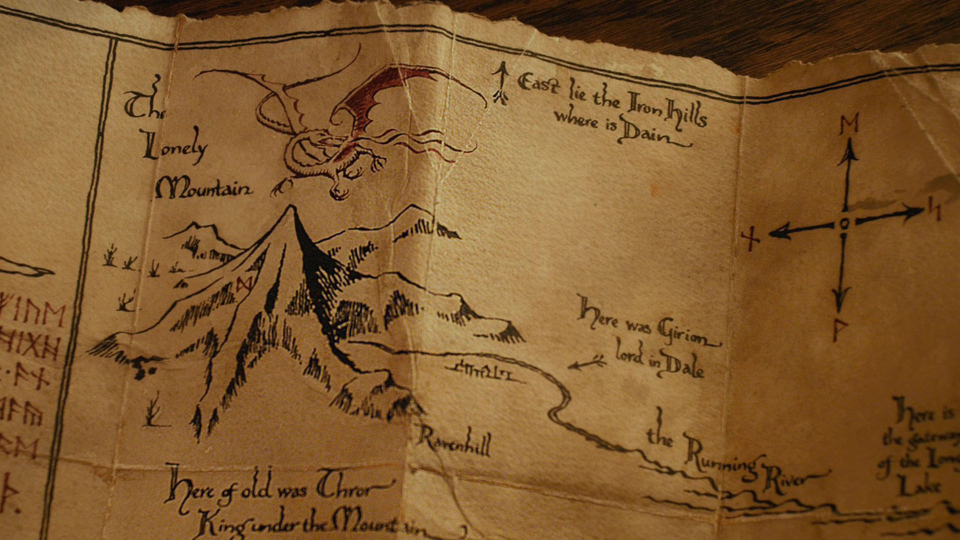 The
Lonely
Mountain
East lie the Iron Hills
where is Dain
ᛖ
ᚾ
ᛋ
ᚹ
ᛞ
Here was Girion
lord in Dale
Ravenhill
the Running River
Here is
the gateway
of the Long
Lake
Here of old was Thror
King under the Mountain
ᚠᛁᚢᛖ
ᚻᛁᚷᚻ